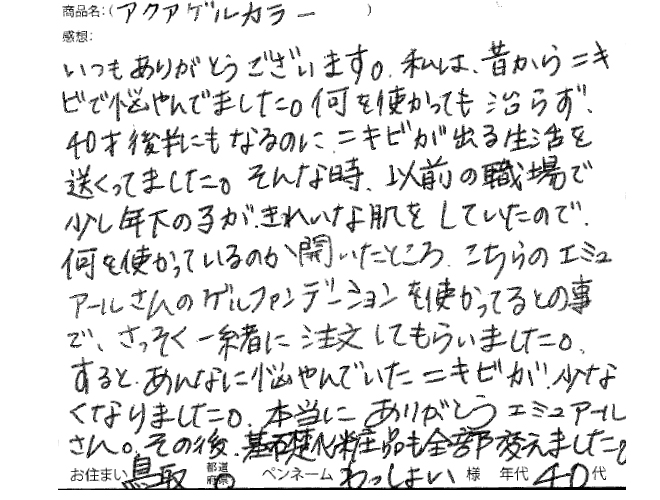 商品名:(アクアゲルカラー)
感想:
いつもありがとうございます。私は、昔からニキ
ビで悩やんでました。何を使かっても治らず、
40才後半にもなるのに、ニキビが出る生活を
送くってました。そんな時、以前の職場で
少し年下の子が、きれいな肌をしていたので、
何を使かっているのか開いたところ、こちらのエミュ
アールさんのゲルファンデーションを使かってるとの事
で、さっそく一緒に注文してもらいました。
すると、あんなに悩やんでいたニキビが、少な
くなりました。本当にありがとうエミュアール
さん。その後、基礎化粧品も全部変えました。
お住まい 鳥取 都道府県 ペンネーム わっしょい 様 年代 40代